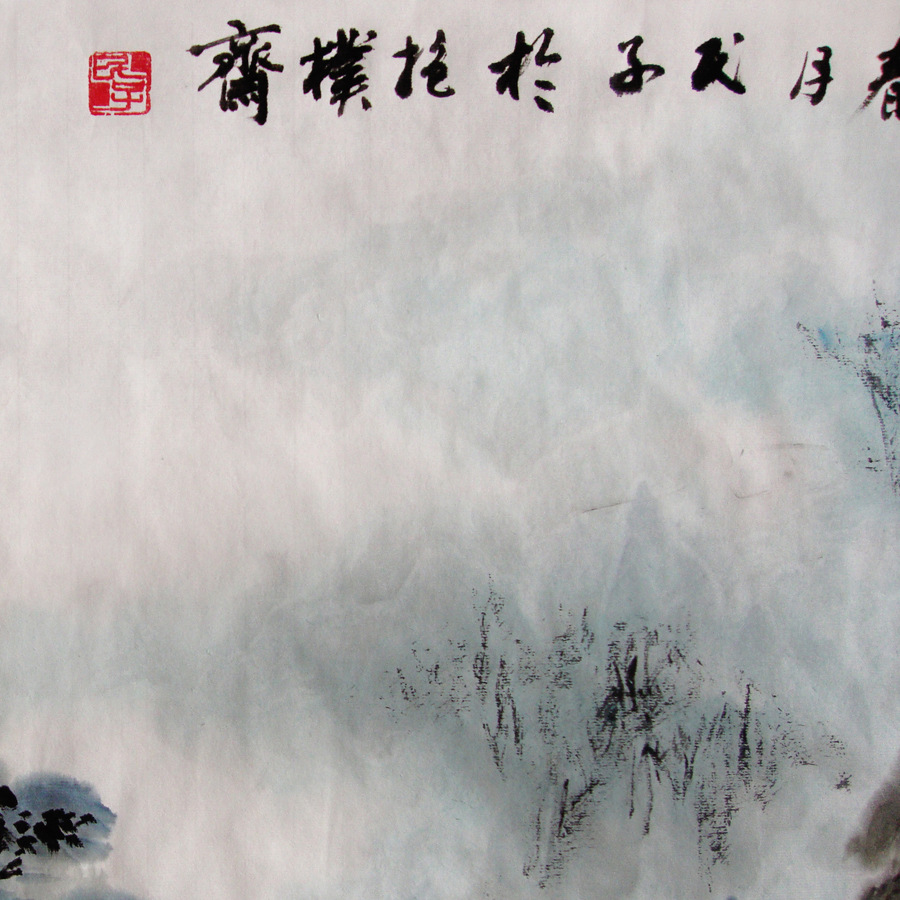 春月民子於抱樸齋
民子